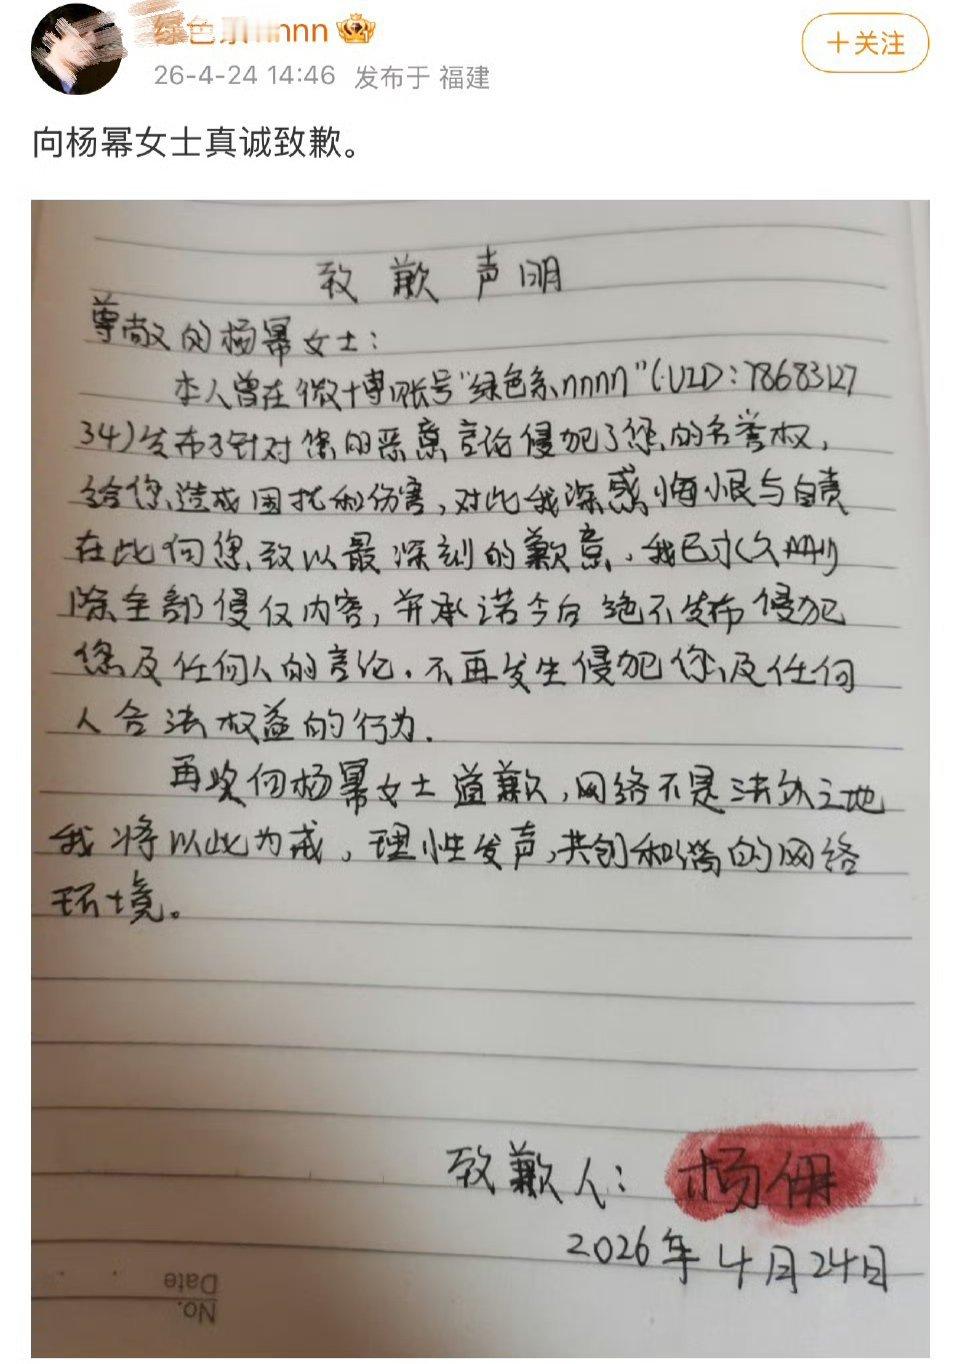 绿色系nnnn
26-4-24 14:46 发布于 福建
+关注
向杨幂女士真诚致歉。
致歉声明
尊敬的杨幂女士：
本人曾在微博账号“绿色系nnnn”(UID:78683127
34)发布了针对您的恶意言论侵犯了您的名誉权，
给您造成困扰和伤害，对此我深感悔恨与自责
在此向您致以最深刻的歉意，我已永久删
除全部侵权内容，并承诺今后绝不发布侵犯
您及任何人的言论，不再发生侵犯您及任何
人合法权益的行为.
再次向杨幂女士道歉，网络不是法外之地
我将以此为戒，理性发声，共创和谐的网络
环境。
致歉人：杨佣
2026年4月24日
Date
No.